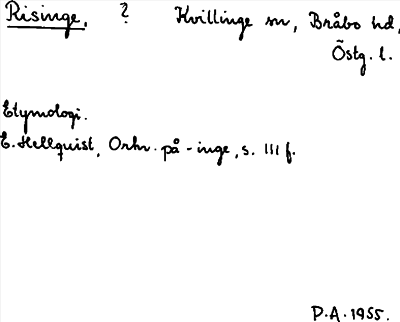 Risinge. ? Kvillinge sn, Bråbo hd,
Östg. l.
Etymologi.
E. Hellquist, Ortn. på -inge, s. 111 f.
P.A. 1955.